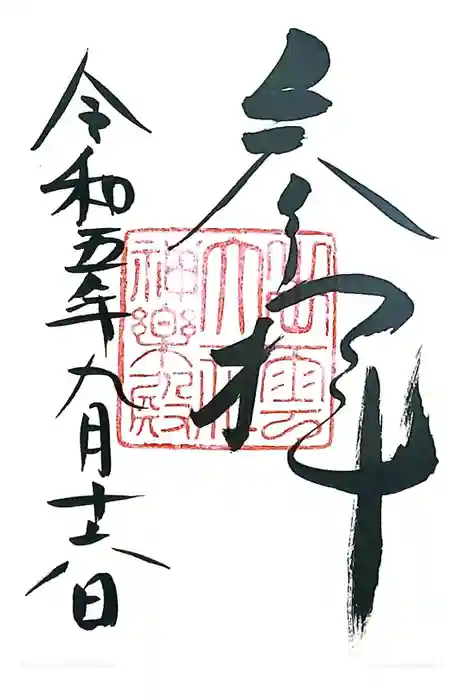 参拝
出雲
大社
神樂殿
令和五年九月十六日